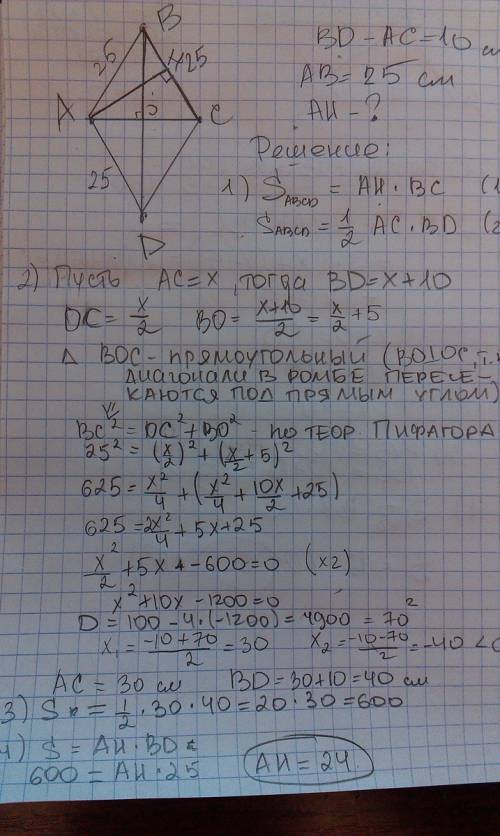 B
25
H 25
A
O
C
25
D
BD - AC = 10 см
AB = 25 см
AH - ?
Решение:
1) S_ABCD = AH · BC (1
S_ABCD = 1/2 AC · BD (2
2) Пусть AC = x, тогда BD = x + 10
OC = x/2 BO = (x+10)/2 = x/2 + 5
Δ BOC - прямоугольный (BO⊥OC, т.к
диагонали в ромбе пересе-
каются под прямым углом)
⇓
BC² = OC² + BO² - по теор. Пифагора
25² = (x/2)² + (x/2 + 5)²
625 = x²/4 + (x²/4 + 10x/2 + 25)
625 = 2x²/4 + 5x + 25
x²/2 + 5x + -600 = 0 (x2)
x² + 10x - 1200 = 0
D = 100 - 4 · (-1200) = 4900 = 70²
x₁ = (-10+70)/2 = 30 x₂ = (-10-70)/2 = -40 < 0
AC = 30 см BD = 30 + 10 = 40 см
3) S = 1/2 · 30 · 40 = 20 · 30 = 600
4) S = AH · BD
600 = AH · 25 AH = 24.